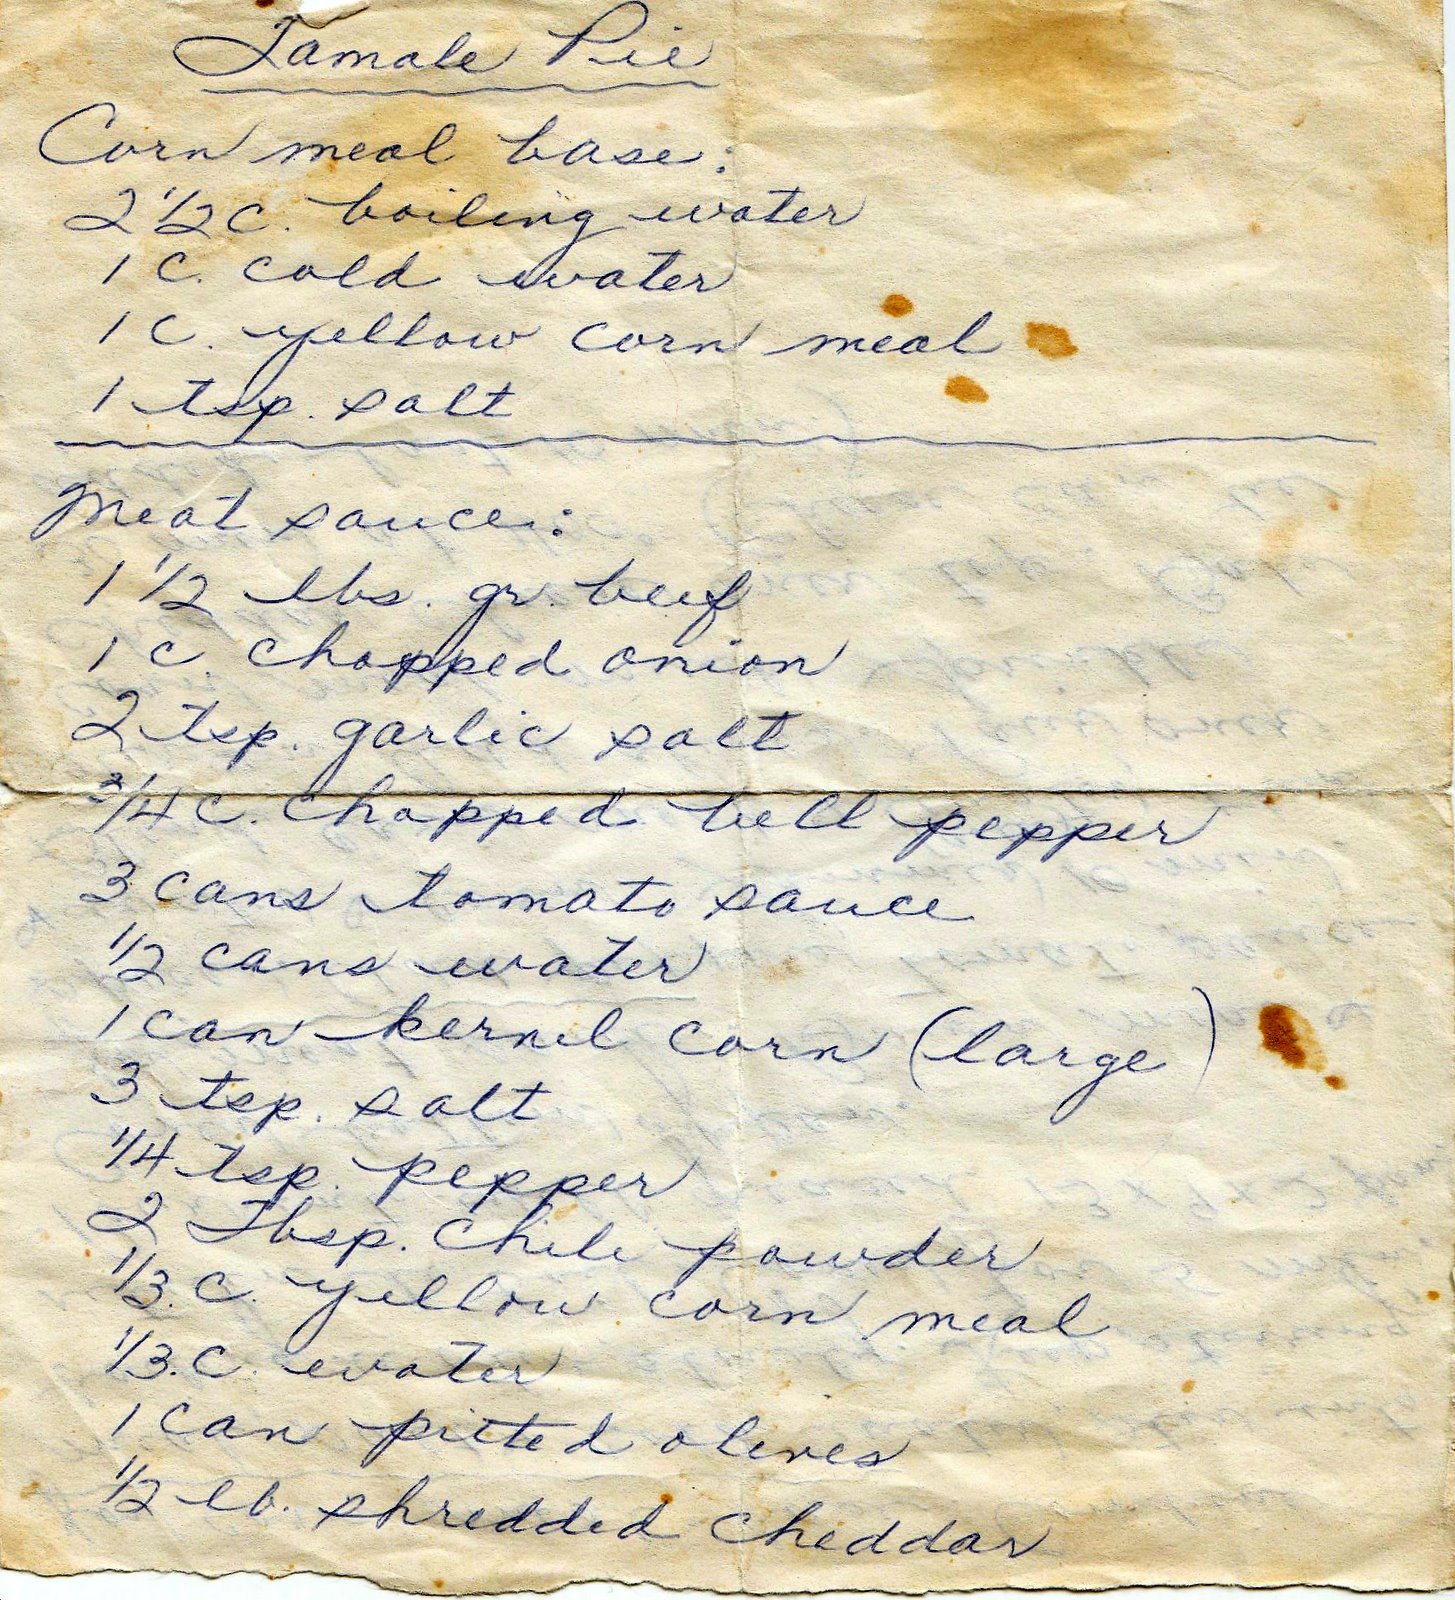 Tamale Pie
Corn meal base:
2 1/2 c. boiling water
1 c. cold water
1 c. yellow corn meal
1 tsp. salt
Meat sauce:
1 1/2 lbs. gr. beef
1 c. chopped onion
2 tsp. garlic salt
3/4 c. chopped bell pepper
3 cans tomato sauce
1/2 cans water
1 can kernel corn (large)
3 tsp. salt
1/4 tsp. pepper
2 Tbsp. chili powder
1/3. c. yellow corn meal
1/3. c. water
1 can pitted olives
1/2 lb. shredded cheddar